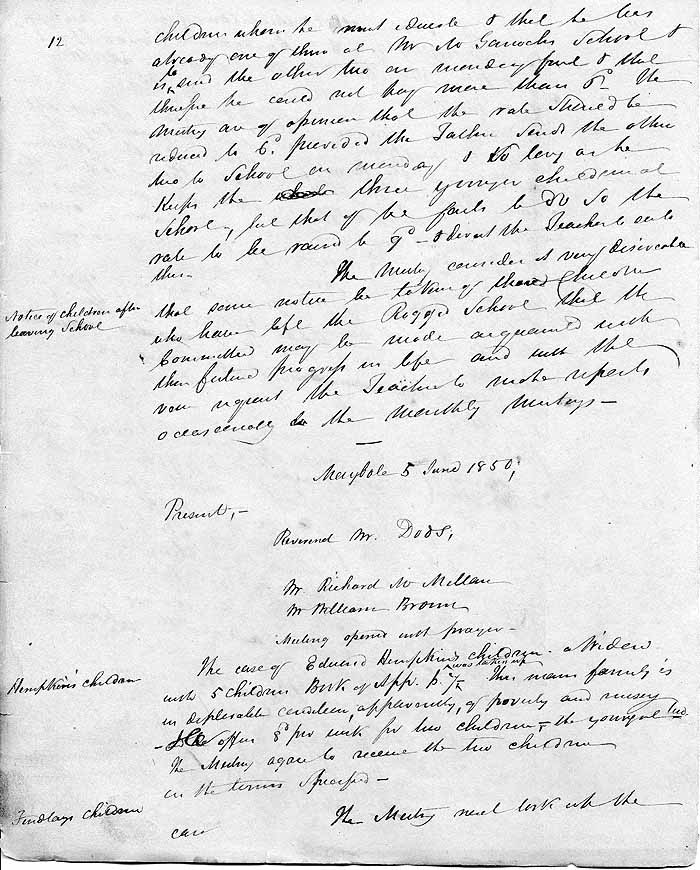 12
children whom he must educate & that he has
already one of them at Mr McGanochs School &
is to send the other two on monday first & that
therefore he could not pay more than 6d. The
Meeting are of opinion that the rate should be
reduced to 6d provided the Father sends the other
two to School on monday & so long as he
keeps the three younger children at
School, but that if he fails to do so the
rate to be raised to 9d - & direct the Teacher to
this.
Notice of children after
leaving School
The Meeting consider it very desireable
that some notice be taken of those Children
who have left the Ragged School that the
Committee may be made acquainted with
their future progress in life and with this
view request the Teacher to make reports
occasionally to the Monthly Meetings —
Maybole 5 June 1850,
Present,-
Reverend Mr. Dods,
Mr Richard McMillan
Mr William Brown
Meeting opened with prayer -
Hempkin's children
The case of Edward Hempkin's children - a Widow
with 5 Children Book of App. p. 7/ was taken up This mans family is
in deplorable condition, apparently, of poverty and misery
- He offers 3d per week for two children, - the youngest
The Meeting agree to receive the two children
on the terms specified -
Findlays Children
The Meeting next took up the
case